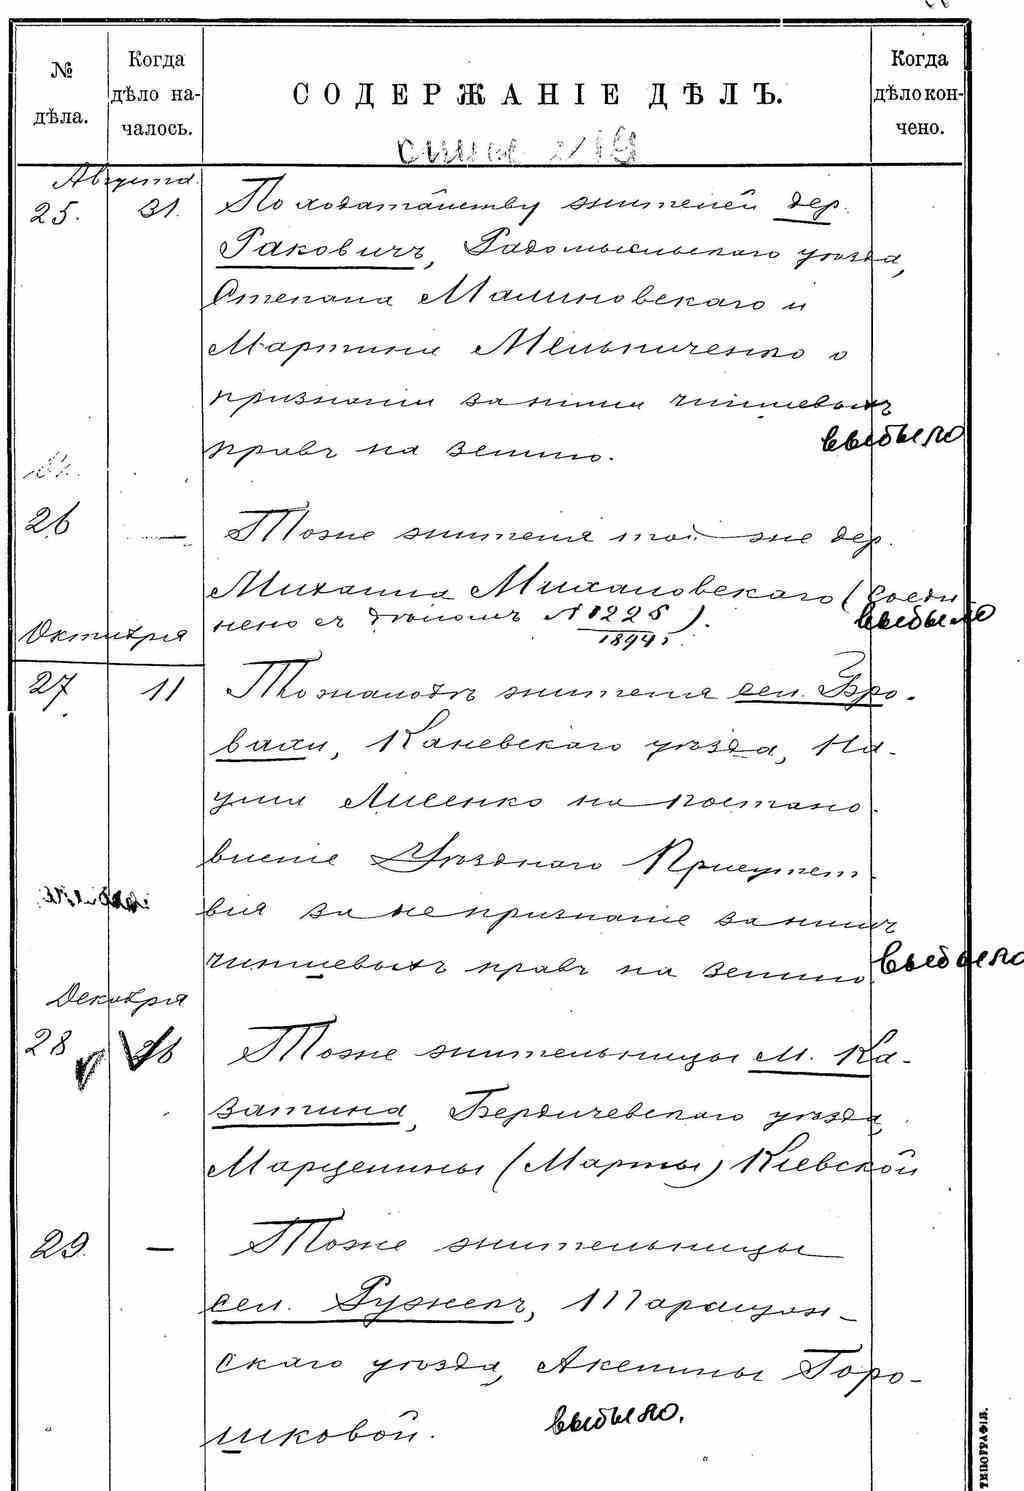 № дѣла.
Когда дѣло началось.
СОДЕРЖАНІЕ ДѢЛЪ.
Когда дѣло кончено.
Августа
25. 31. По ходатайству жителей дер.
Раковичъ, Радомысльскаго уѣзда,
Степана Малиновскаго и
Мартина Мельниченко о
признаніи за ними чиншевыхъ
правъ на землю. выбыло
26 — Тоже жителя той же дер.
Михаила Михаловскаго (соеди-
нено съ дѣломъ № 1225/1894 г.). выбыло
Октября
27 11 По жалобѣ жителя сел. Бро-
вахи, Каневскаго уѣзда, На-
ума Лисенко на постано-
вленіе Уѣзднаго Присутст-
вія за непризнаніе за нимъ
чиншевыхъ правъ на землю. выбыло
Декабря
28 Тоже жительницы м. Ка-
затина, Бердичевскаго уѣзда,
Марцелины (Марты) Кіевской
29. — Тоже жительницы
сел. Ружекъ, Таращан-
скаго уѣзда, Акелины Горо-
шковой. выбыло.
ТИПОГРАФІЯ.